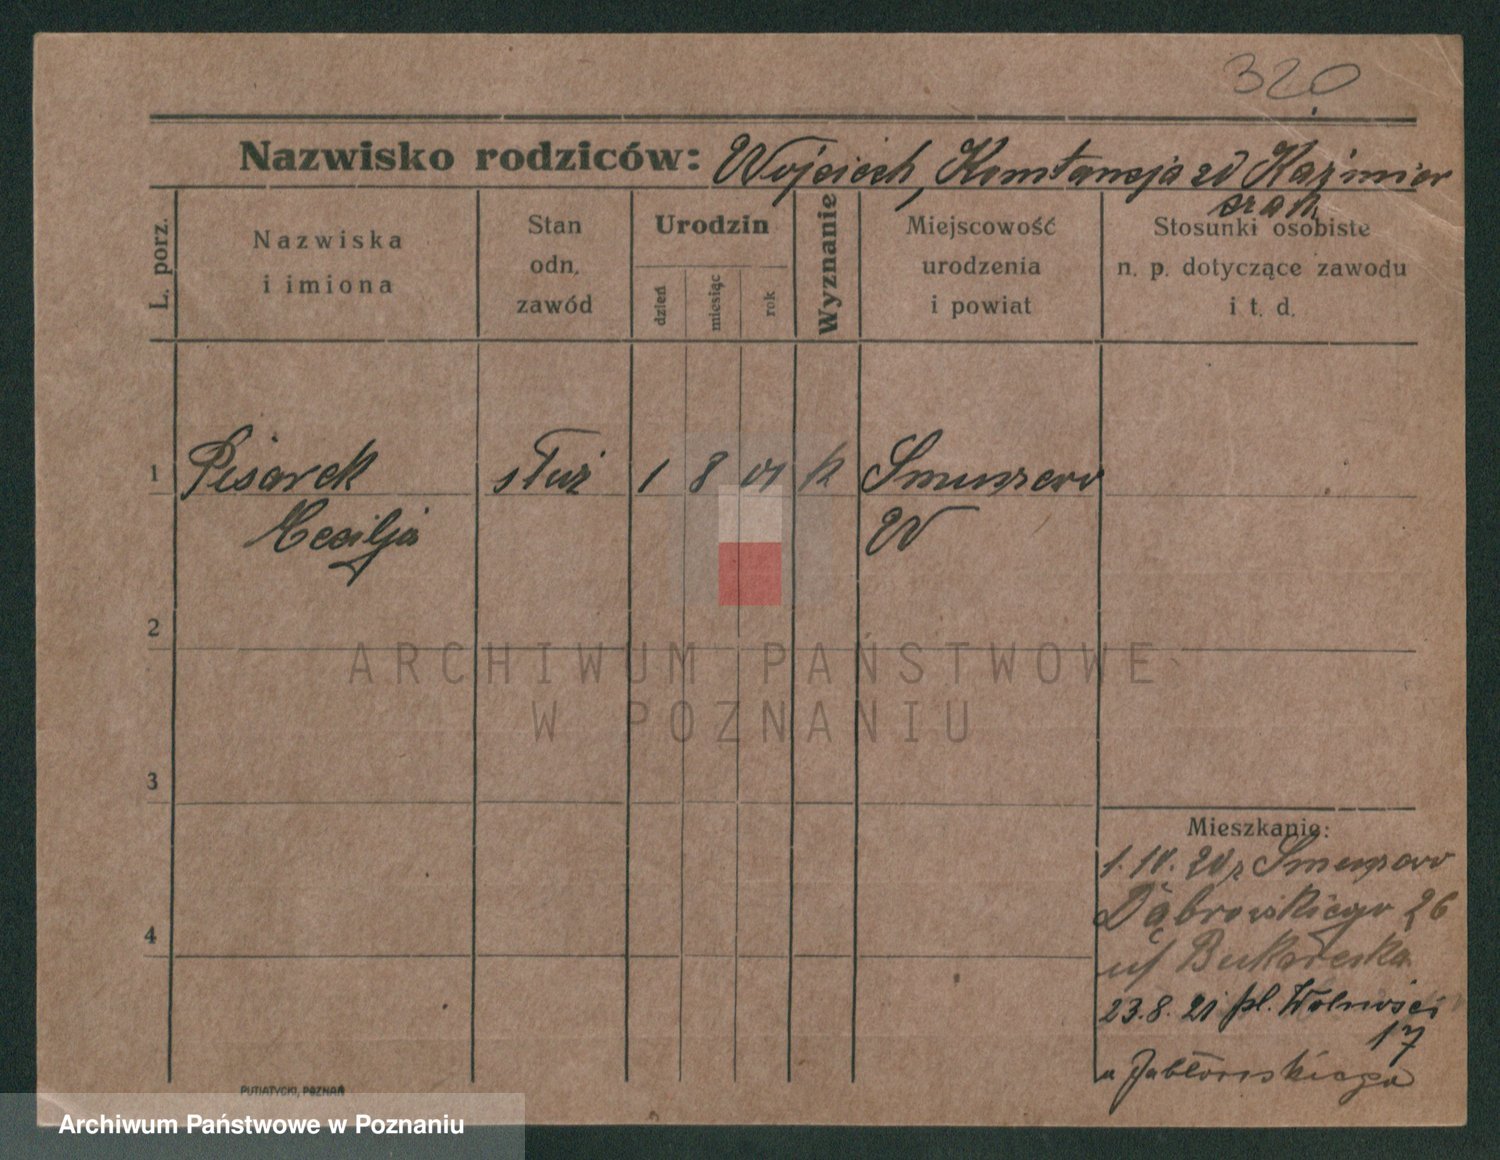 320
Nazwisko rodziców: Wojciech, Konstancja zd Kaźmier
czak
L. porz.
Nazwiska
i imiona
Stan
odn.
zawód
Urodzin
dzień
miesiąc
rok
Wyznanie
Miejscowość
urodzenia
i powiat
Stosunki osobiste
n. p. dotyczące zawodu
i t. d.
1 Pisarek służ 1 8 01 k
Cecilja W
2
ARCHIWUM PAŃSTWOWE
W POZNANIU
3
Mieszkanie:
1.10.20 z
Dąbrowskiego 26
4
u/
23.8.21 pl. Wolności
17
u Jabłońskiego
PUTIATYCKI, POZNAŃ
Archiwum Państwowe w Poznaniu